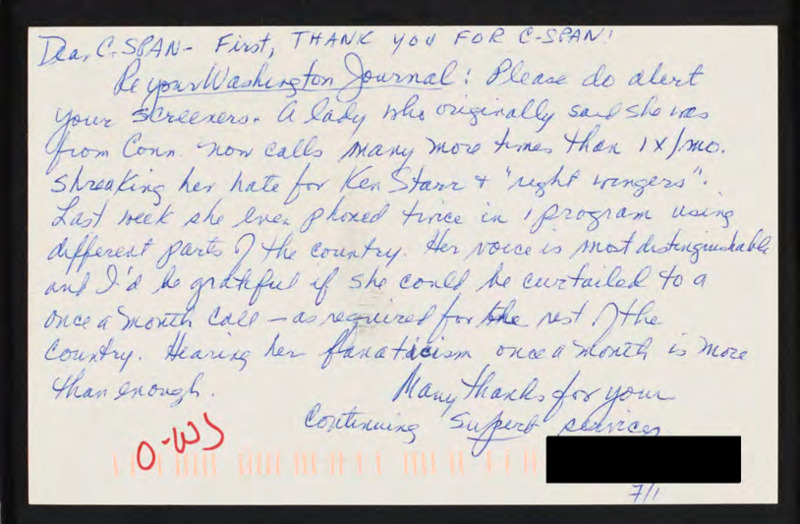 Dear C-SPAN- First, THANK YOU FOR C-SPAN!
Re your Washington Journal: Please do alert
your screeners. A lady who originally said she was
from Conn. now calls many more times than 1x/mo.
shreaking her hate for Ken Starr + "right wingers".
Last week she even phoned twice in 1 program using
different parts of the country. Her voice is most distinguishable
and I'd be grateful if she could be curtailed to a
once a month call – as required for the rest of the
country. Hearing her fanaticism once a month is more
than enough.
Many thanks for your
continuing superb services.
O-WJ
7/1